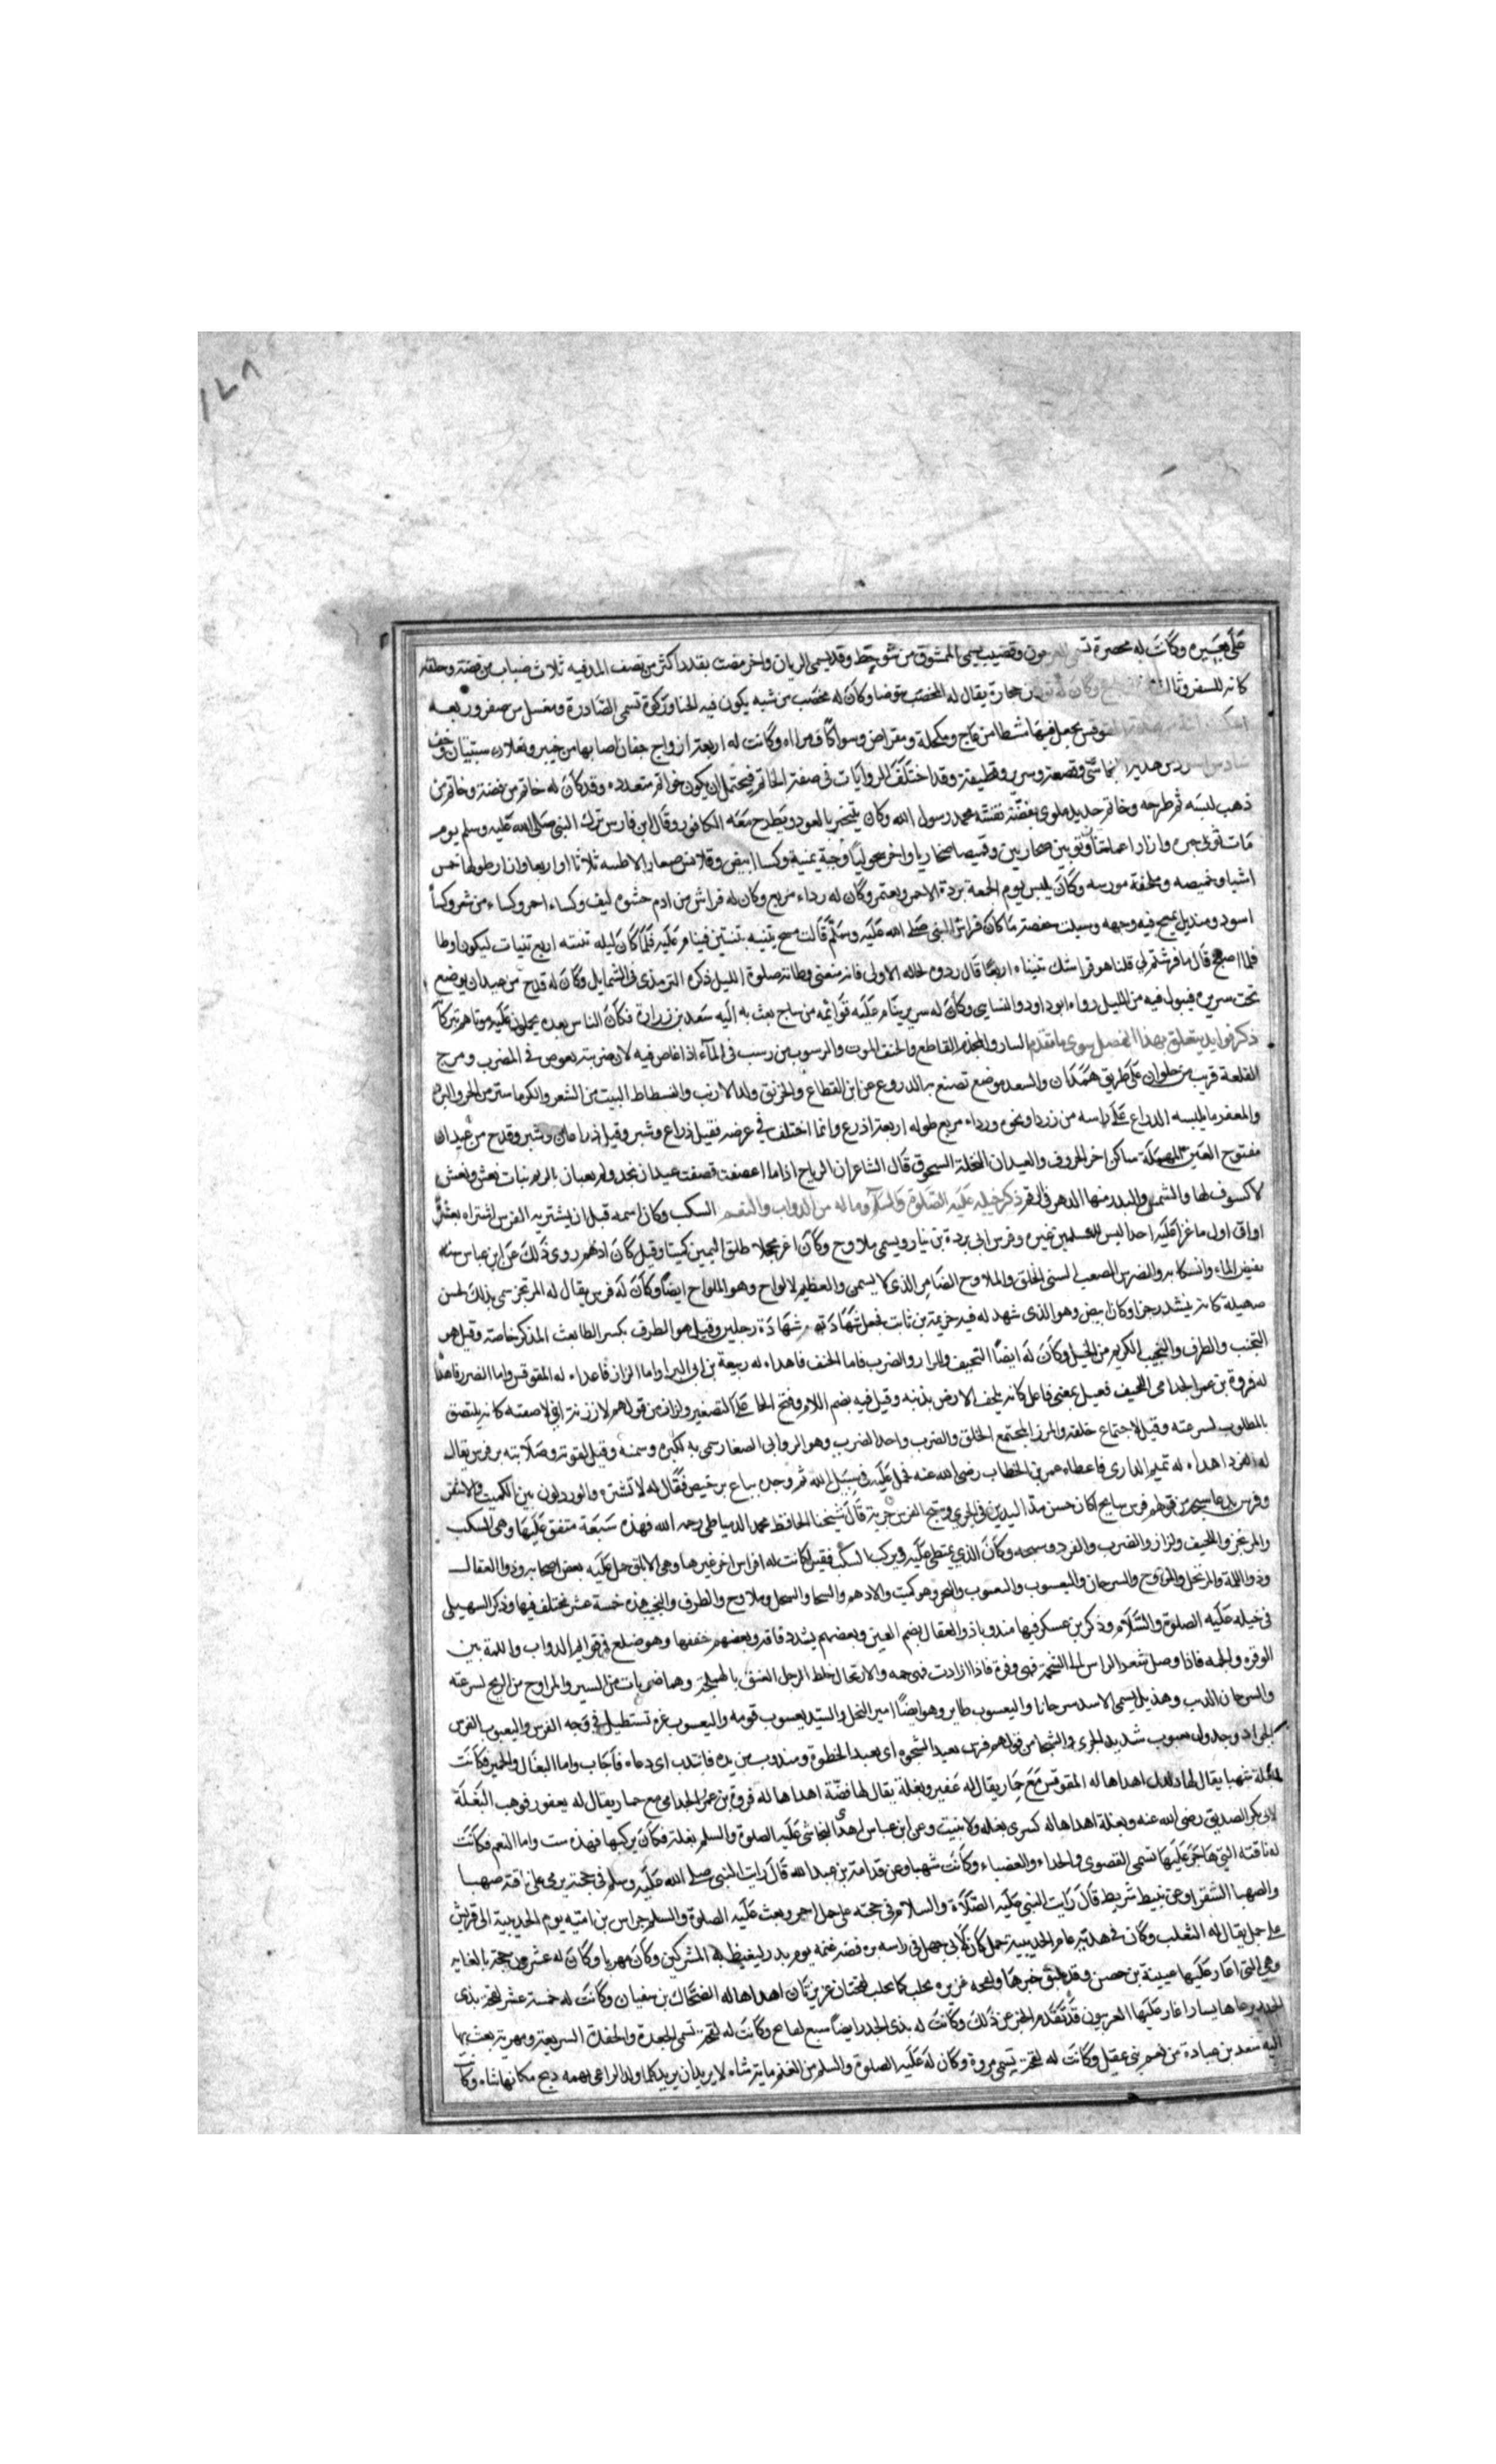 ١٤٨
على بعيره وكانت له مخصرة تسمى العرجون وقضيب يسمى الممشوق من شوحط وقدح يسمى الريان واخر مضبب بقدر اكثر من نصف المد فيه ثلاث ضباب من فضة وحلقة
كانت للسفر وثالث من زجاج وكان له تور من حجارة يقال له المخضب يتوضا وكان له مخضب من شبه يكون فيه الحنا وركوة تسمى الصادرة ومغسل من صفر وربعه
المقوقس يجعل فيها مشطا من عاج ومكحلة ومقراض وسواكا ومراه وكانت له اربعة ازواج خفاف اصابها من خيبر ونعلان سبتيان وخف
النجاشي وقصعة وسرير وقطيفة وقد اختلف الروايات في صفة الخاتم فيحتمل ان يكون خواتم متعدده وقد كان له خاتم من فضة وخاتم من
ذهب لبسه ثم طرحه وخاتم حديد ملوى بفضة نقشه محمد رسول الله وكان يتبخر بالعود ويطرح معه الكافور وقال ابن فارس ترك النبي صلى الله عليه وسلم يوم
مات ثوبى حبره وازارا عمانيا وثوبين صحاريين وقميصا صحاريا واخر سحوليا وجبة يمنية وكسا ابيض وقلانس صغارا لاطئه ثلاثا او اربعا وازار طولها خمس
اشبار وخميصه وملحفة مورسه وكان يلبس يوم الجمعة بردة الاحمر ويعتم وكان له رداء مربع وكان له فراش من ادم حشوه ليف وكساء احمر وكساء من شعر وكسا
اسود ومنديل يمسح فيه وجهه وسيلت حفصة ما كان فراش النبي صلى الله عليه وسلم قالت مسح يثنيه ثنتين فينام عليه فلما كان ليله ثنيته اربع ثنيات ليكون اوطا
فلما اصبح قال ما فرشتم لي قلنا هو فراشك ثنيناه اربعا قال ردوه لحاله الاولى فانه منعتني وطاته صلوة الليل ذكره الترمذى في الشمايل وكان له قدح من عيدان يوضع
تحت سريره فيبول فيه من الليل رواه ابو داود والنسايى وكان له سرير ينام عليه قوائمه من ساج بعث به اليه سعد بن زرارة فكان الناس بعده يحملون عليه موتاهم تبركا
ذكر فوايد يتعلق بهذا الفصل سوى ما تقدم البتار والمخذم القاطع والحتف الموت والرسوب من رسب في الماء اذا غاص فيه لان ضربته تغوص في المضرب ومرج
القلعة قريب من حلوان على طريق همدان والسعد موضع تصنع به الدروع عن ابن القطاع والخرنق ولد الارنب والفسطاط البيت من الشعر
والمغفر ما يلبسه الدراع على راسه من زرد او نحوه ورداء مربع طوله اربعة اذرع وانما اختلف في عرضه فقيل ذراع وشبر وقيل ذراعان وشبر وقدح من عيدان
مفتوح العين المهملة ساكن اخر الحروف والعيدان النخلة السحوق قال الشاعر ان الرياح اذا ما اعصفت قصفت عيدان نجد ولم يعبان بالرتم بنات نعش ونعش
لا كسوف لها والشمس والبدر منها الدهر في الرقم ذكر خيله عليه الصلوة والسلام وما له من الدواب والنعم السكب وكان اسمه قبل ان يشتريه الفرس اشتراه بعشر
اواق اول ما غزا عليه احدا ليس للمسلمين غيره وفرس ابى بردة بن نيار ويسمى ملاوح وكان اغر محجلا طلق اليمين كميتا وقيل كان ادهم روى ذلك عن ابن عباس
بفيض الماء وانسكابه والضرس الصعب لسئ الخلق والملاوح الضامر الذى لا يسمن والعظيم لالواح وهو الملواح ايضا وكان له فرس يقال له المرتجز سمى بذلك لحسن
صهيله كانه ينشد رجزا وكان ابيض وهو الذى شهد له فيه خزيمة بن ثابت فجعل شهادته شهادة رجلين وقيل هو الطرف بكسر الطا نعت المذكر خاصة وقيل هو
النجيب والطرف والنجيب الكريم من الخيل وكان له ايضا اللحيف واللزاز والضرب فاما اللحيف فاهداه له ربيعة بن ابى البرا واما اللزاز فاهداه له المقوقس واما الضرب فاهداه
له فروة بن عمر الجذامى اللحيف فعيل بمعنى فاعل كانه يلحف الارض بذنبه وقيل فيه بضم اللام وفتح الحا على التصغير ولزاز من قولهم لاززته اى لاصقته كانه يلتصق
بالمطلوب لسرعته وقيل لاجتماع خلقه والمرز المجتمع الخلق والضرب واحد الضرب وهو الروابى الصغار سمى به لكبره وسمنه وقيل لقوته وصلابته برفرس يقال
له الورد اهداه له تميم الدارى فاعطاه عمر بن الخطاب رضى الله عنه فحمل عليه في سبيل الله ثم وجده يباع برخيص فقال له لا تشتره والورد لون بين الكميت والاشقر
وفرس يدعا سبحه من قولهم فرس سابح اذا كان حسن مد اليدين في الجرى وسبح الفرس جريه قال شيخنا الحافظ محمد الدمياطى رحمه الله فهذه سبعة متفق عليها وهى السكب
والمرتجز واللحيف ولزاز والضرب والورد وسبحه وكان الذي يمتطى عليه ويركب السكب فقيل كانت له افراس اخر غيرها وهى الابلق حمل عليه بعض اصحابه وذو العقال
وذو اللمة والمرتجل والمراوح والسرحان واليعسوب واليعبوب والبحر وهو كميت والادهم والشحا والسجل وملاوح والطرف والنجيب هذه خمسة عشر مختلف فيها وذكر السهيلى
في خيله عليه الصلوة والسلام وذكر بن عسكر فيها مندوبا وذو العقال بضم العين وبعضهم يشدد قافه وبعضهم خففها وهو ضلع في قوايم الدواب واللمة بين
الوفره والجمه فاذا وصل شعر الراس الى الشحمة فهى وفرة فاذا ازادت فهى جمه والارتجال خلط الرجل العنق بالهملجة وهما ضربان من السير والمراوح من الريح لسرعته
والسرحان الذيب وهذيل يسمى الاسد سرحانا واليعسوب طاير وهو ايضا امير النحل والسيد يعسوب قومه واليعسوب غره تستطيل في وجه الفرس واليعبوب الفرس
الجواد وجدول يعبوب شديد الجرى والشحا من قولهم فرس بعيد الشحوه اى بعيد الخطوة ومندوب من ندبه فانتدب اى دعاه فاجاب واما البغال والحمير فكانت
بغلة شهبا يقال لها دلدل اهداها له المقوقس مع حمار يقال له عفير وبغلة يقال لها فضة اهداها له فروة بن عمر الجذامى مع حمار يقال له يعفور فوهب البغلة
لابى بكر الصديق رضى الله عنه وبغلة اهداها له كسرى بغله ولا يثبت وعن ابن عباس اهدى النجاشى عليه الصلوة والسلم بغلة فكان يركبها فهذه ست واما النعم فكانت
له ناقته التى هاجر عليها تسمى القصوى والجدعاء والعضباء وكانت شهبا وعن قدامة بن عبد الله قال رايت النبى صلى الله عليه وسلم في حجته يرمى على ناقة صهبا
والصهبا الشقرا وعن نبيط بن شريط قال رايت النبي عليه الصلاة والسلام في حجته على جمل احمر وبعث عليه الصلوة والسلم خراش بن امية يوم الحديبية الى قريش
على جمل يقال له الثعلب وكان في هديه عام الحديبية جمل كان لابى جهل في راسه بره فضة غنمه يوم بدر ليغيظ به المشركين وكان مهريا وكان له عشرون لقحة بالغابه
وهي التى اغار عليها عيينة بن حصن وقد سبق خبرها ولقحه غزيره تحلب كما تحلب لقحتان غزيرتان اهداها له الضحاك بن سفيان وكانت له خمسة عشر لقحة بذى
الجدر يرعاها يسار اغار عليها العرنيون قد تقدم الخبر عن ذلك وكانت له بذى الجدر ايضا سبع لقاح وكانت له لقحة تسمى الجعدة والحفدة السريعة ومهرية بعث بها
اليه سعد بن عبادة من نعم بنى عقيل وكانت له لقحة تسمى مروة وكان له عليه الصلوة والسلم من الغنم ماية شاه لا يريد ان يزيد كلما ولد الراعى بهمه ذبح مكانها شاه وكانت